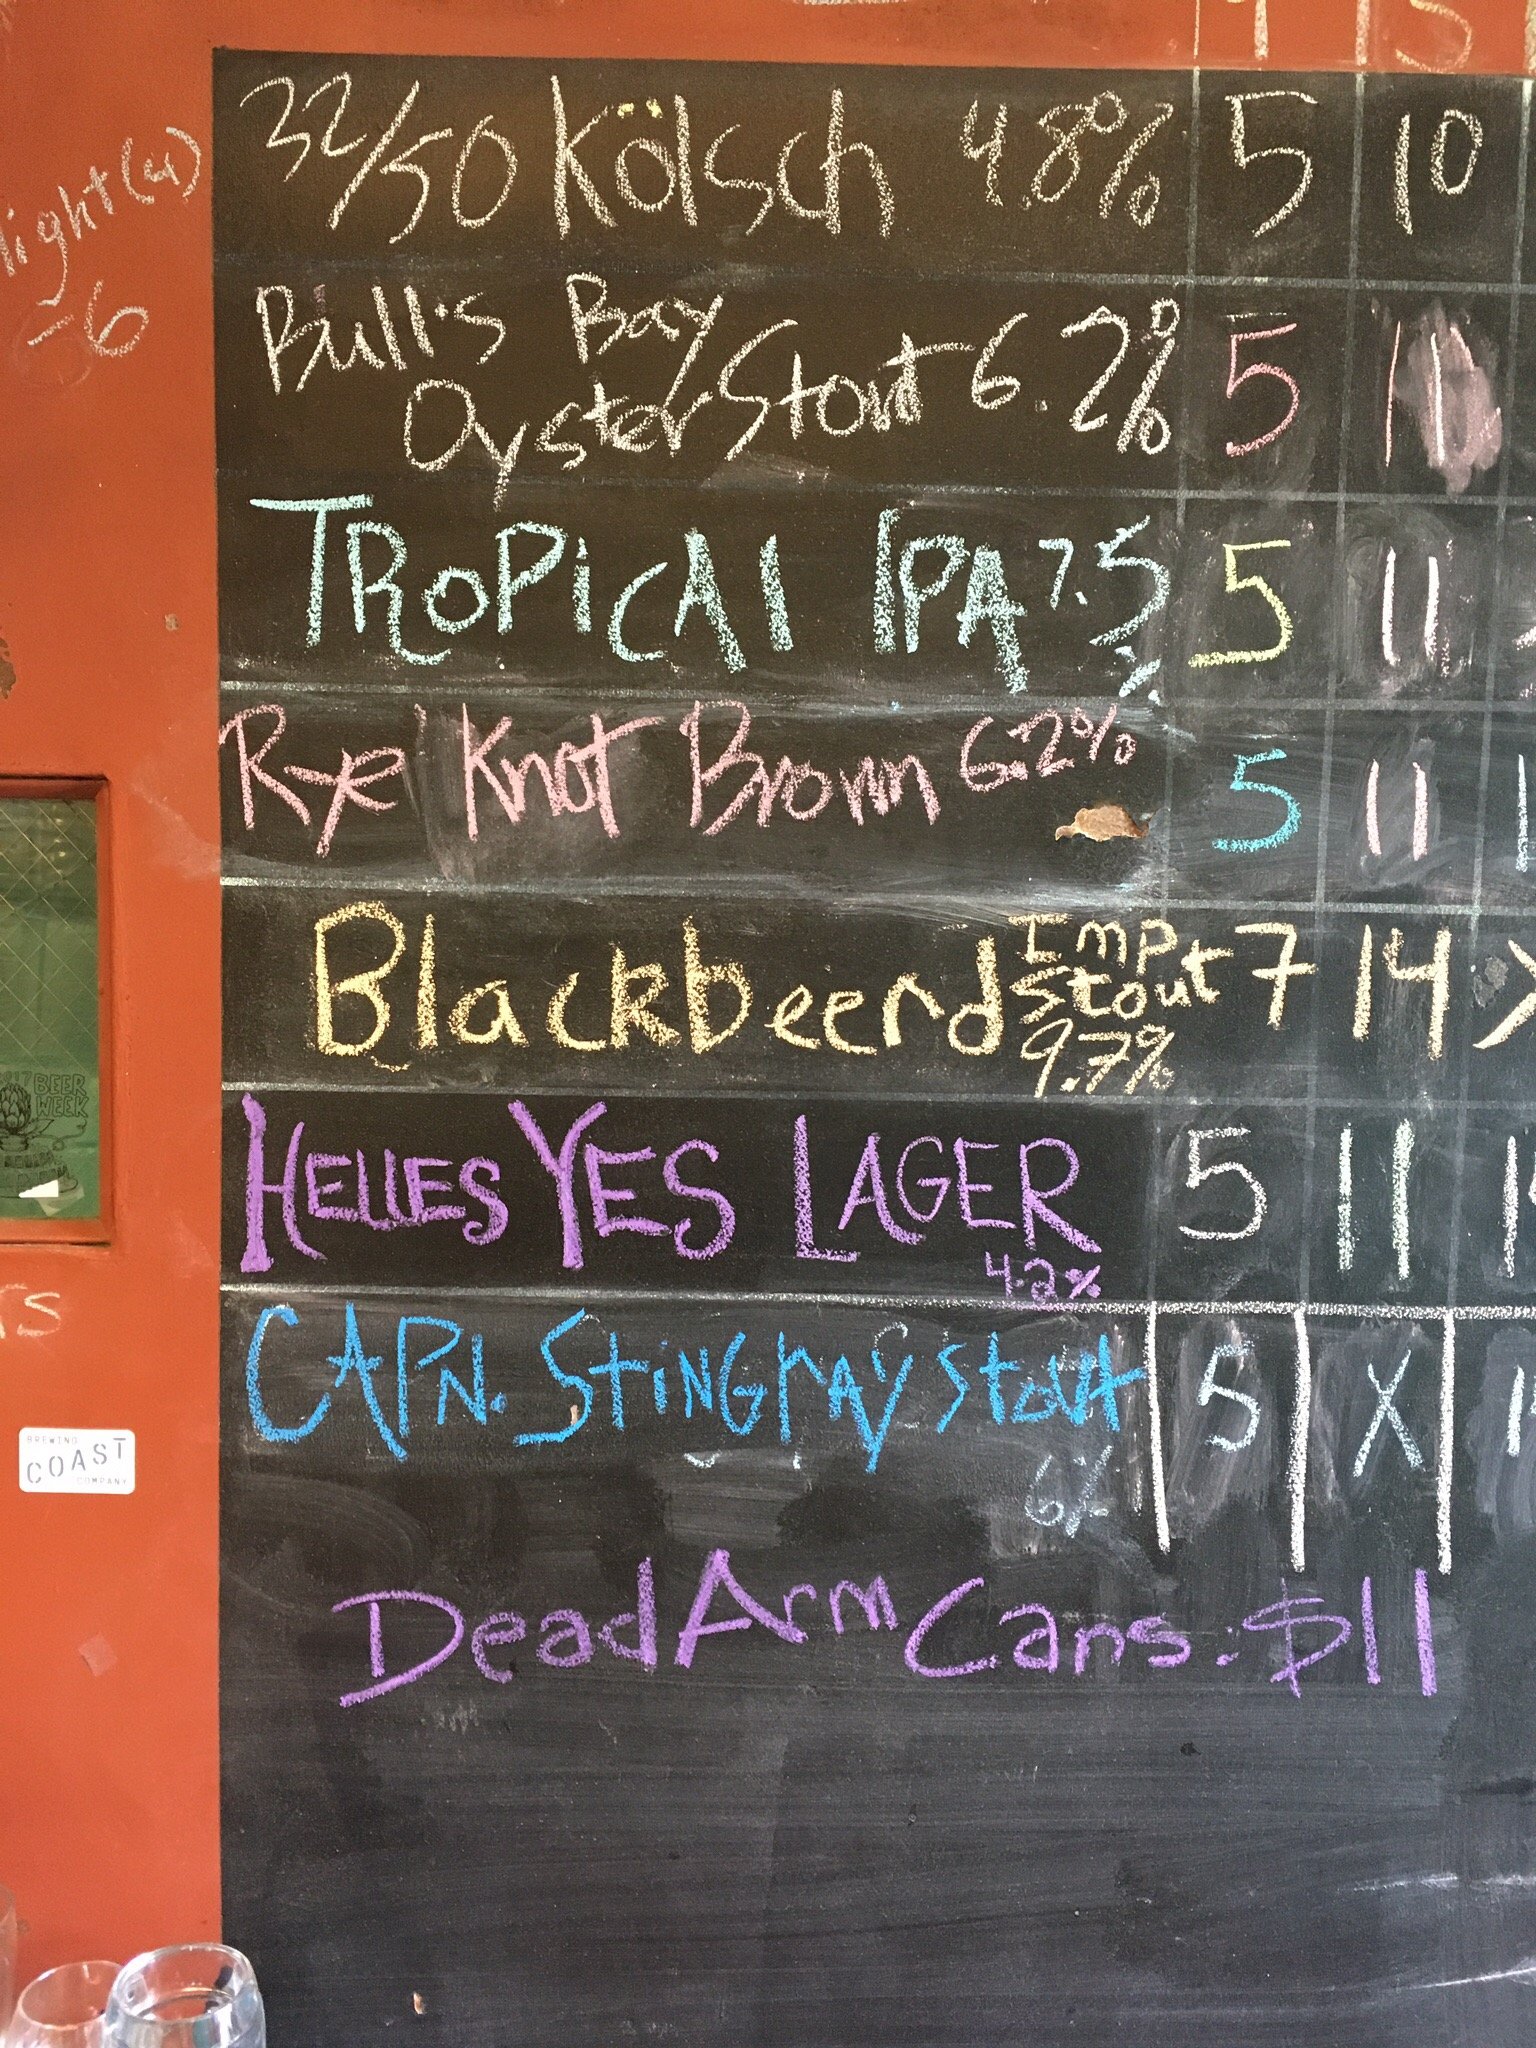 32/50 Kölsch 4.8% 5 10
light (4)
-6
Bull's Bay
Oyster Stout 6.2% 5 11
TROPiCAl IPA 7.5% 5 11
Rye Knot Brown 6.2% 5 11
Blackbeerd Imp Stout 9.7% 7 14
BEER
WEEK
HELLES YES LAGER 4.2% 5 11
CAPN. STiNGrAy Stout 6% 5 X
BREWING
COAST
COMPANY
Dead Arm Cans: $11